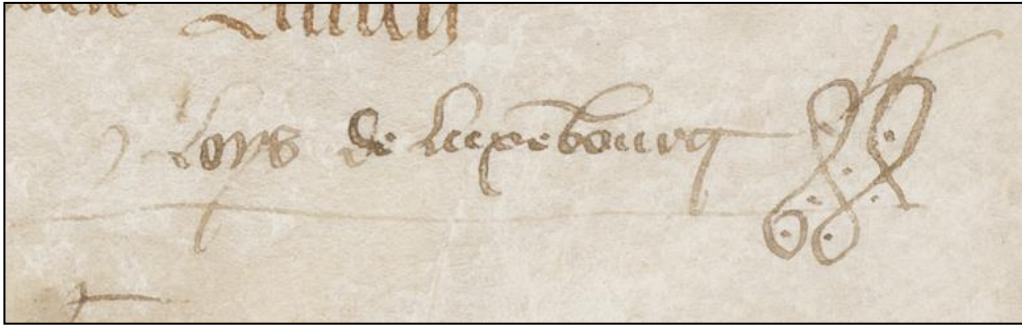 Loys de Luxēbourg